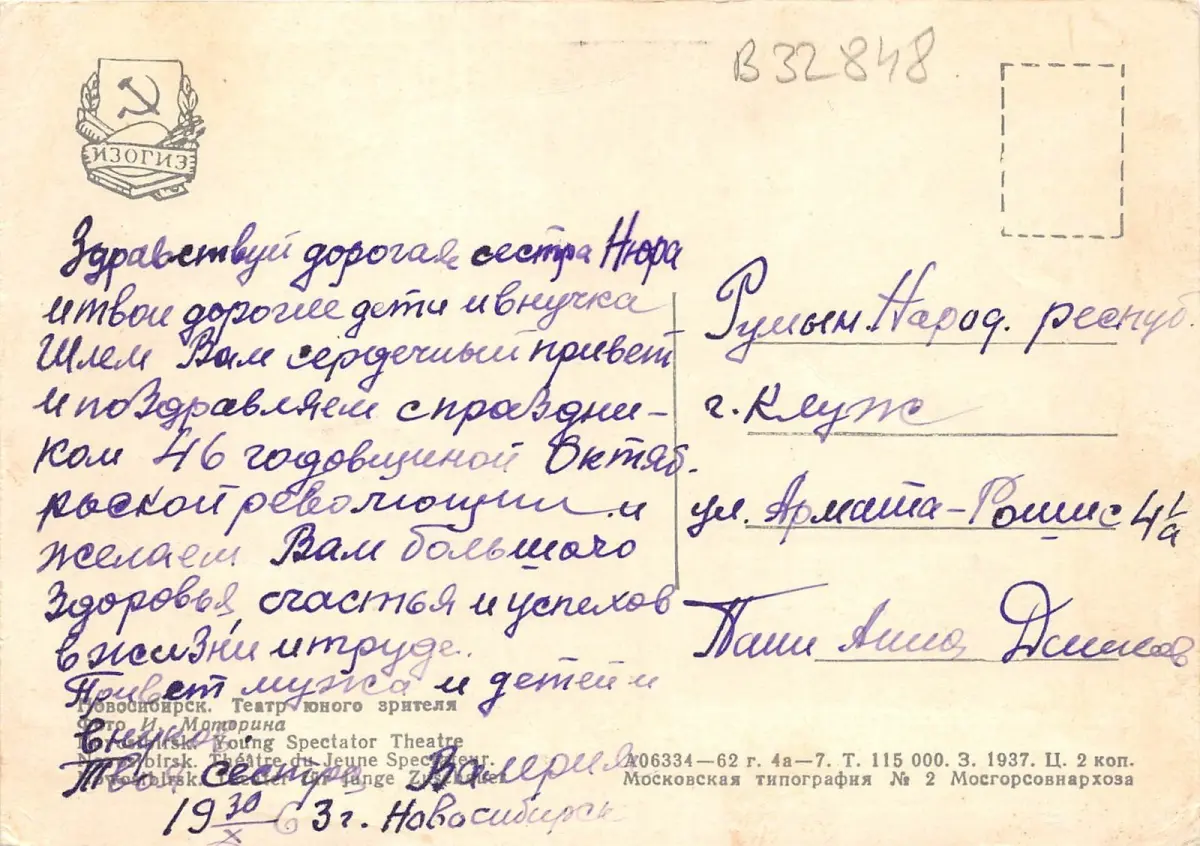 В 32848
ИЗОГИЗ
Здравствуй дорогая сестра Нюра
и твои дорогие дети и внучка
Шлем Вам сердечный привет
и поздравляем с праздни-
ком 46 годовщиной Октяб.
рьской революции и
желаем Вам большого
здоровья, счастья и успехов
в жизни и труде.
Привет мужа и детей и
внуков.
Твоя сестра Валерия
19 30/X 63 г. Новосибирск
Румын. Народ. респуб.
г. Клуж
ул. Армата-Рошие 41/а
Паши Анна
Новосибирск. Театр юного зрителя
Фото И. Моторина
Novosibirsk. Young Spectator Theatre
Novosibirsk. Théâtre du Jeune Spectateur.
Novosibirsk. Theater für junge Zuschauer
А06334—62 г. 4а—7. Т. 115 000. З. 1937. Ц. 2 коп.
Московская типография № 2 Мосгорсовнархоза